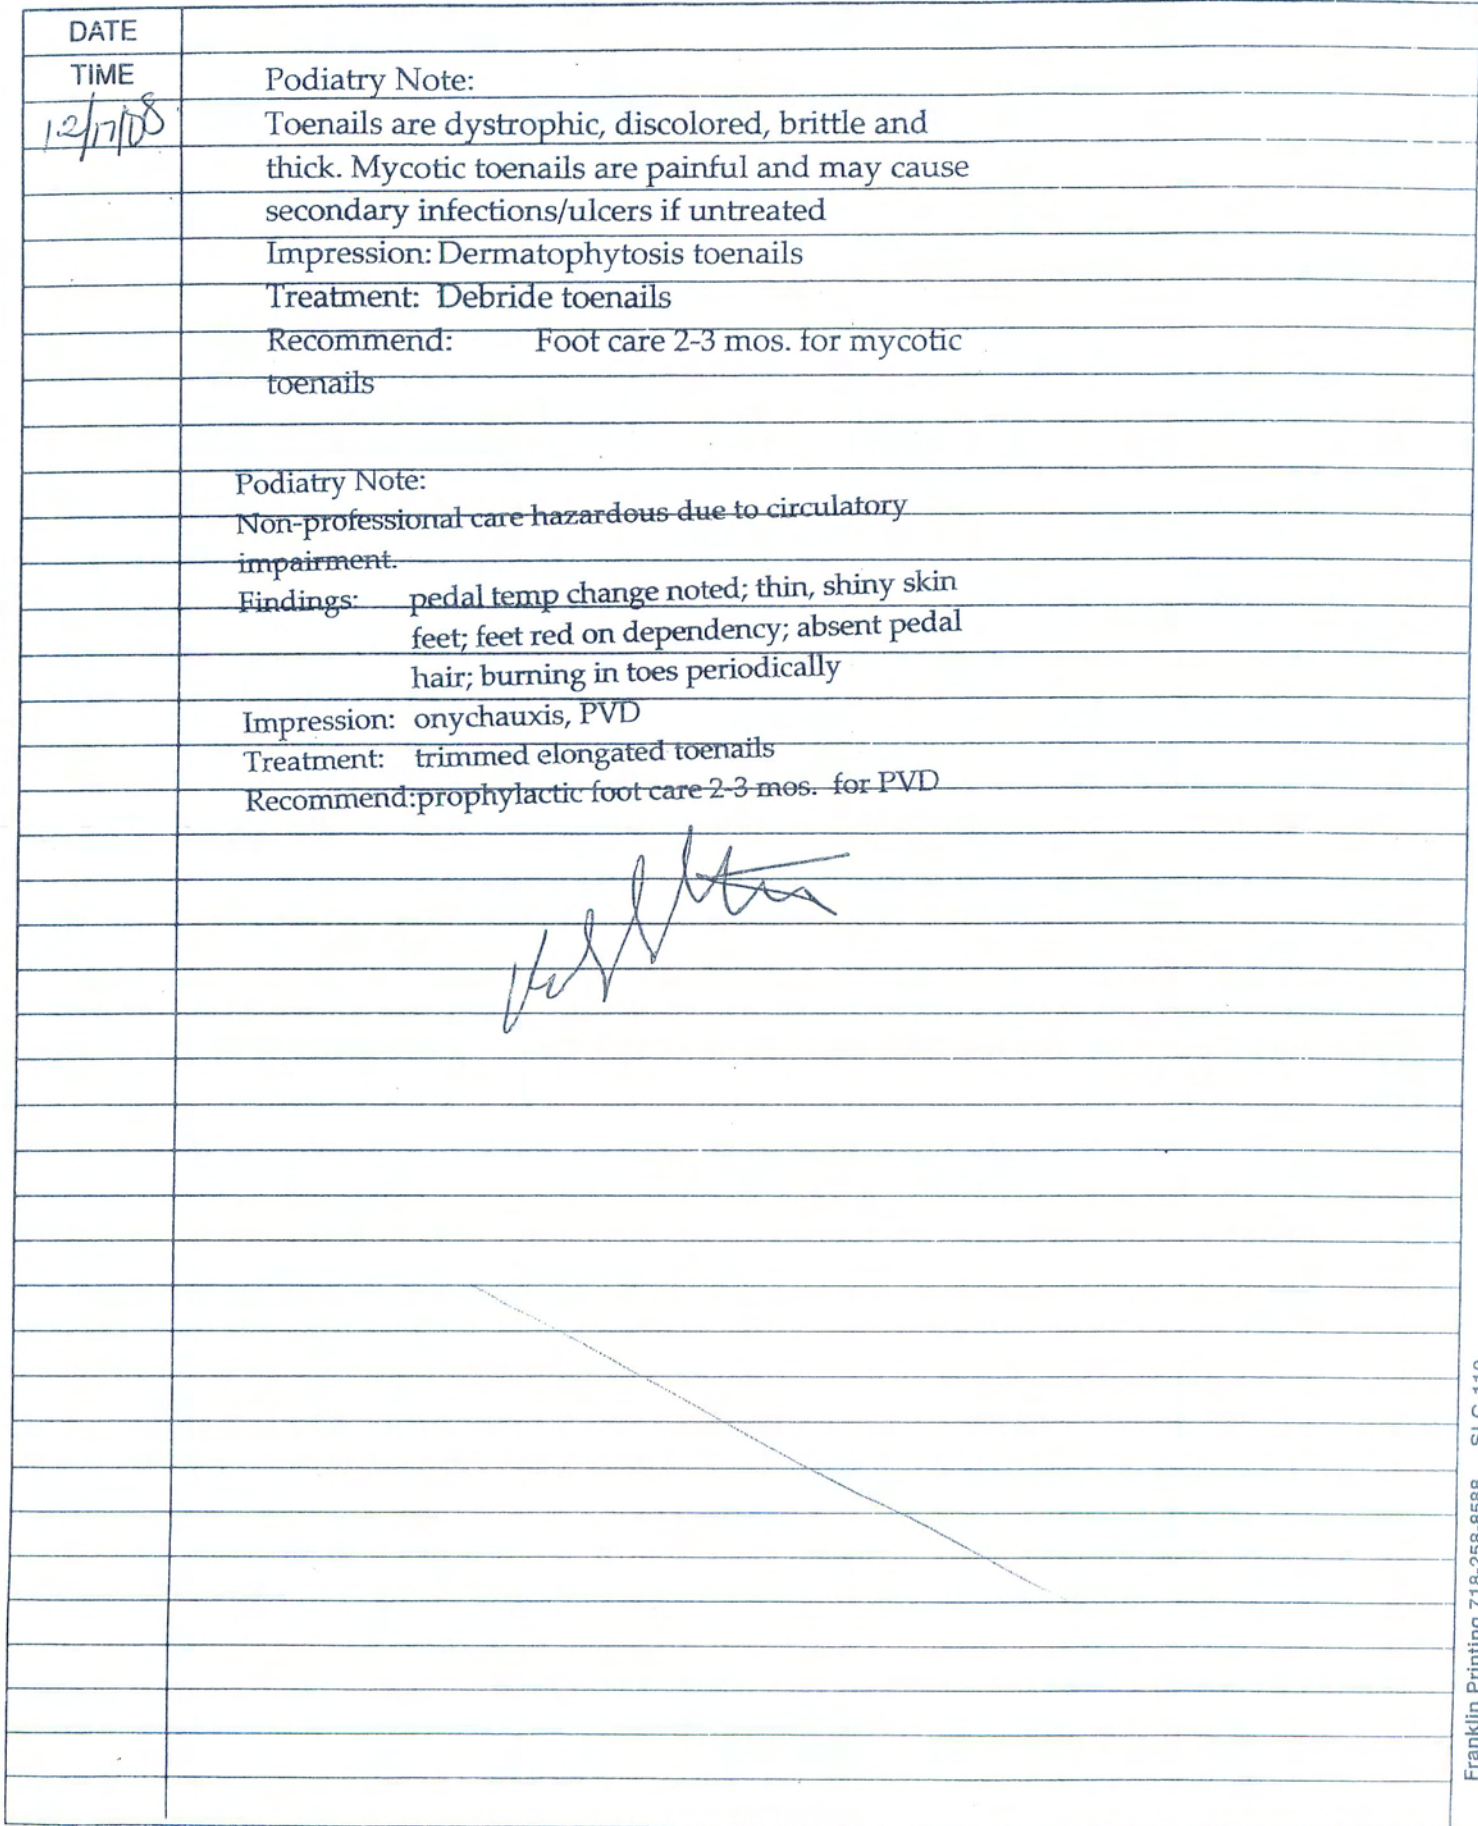 DATE
TIME
12/17/08
Podiatry Note:
Toenails are dystrophic, discolored, brittle and
thick. Mycotic toenails are painful and may cause
secondary infections/ulcers if untreated
Impression: Dermatophytosis toenails
Treatment: Debride toenails
Recommend: Foot care 2-3 mos. for mycotic
toenails
Podiatry Note:
Non-professional care hazardous due to circulatory
impairment.
Findings: pedal temp change noted; thin, shiny skin
feet; feet red on dependency; absent pedal
hair; burning in toes periodically
Impression: onychauxis, PVD
Treatment: trimmed elongated toenails
Recommend:prophylactic foot care 2-3 mos. for PVD
Franklin Printing 718-258-8588 SLC 110